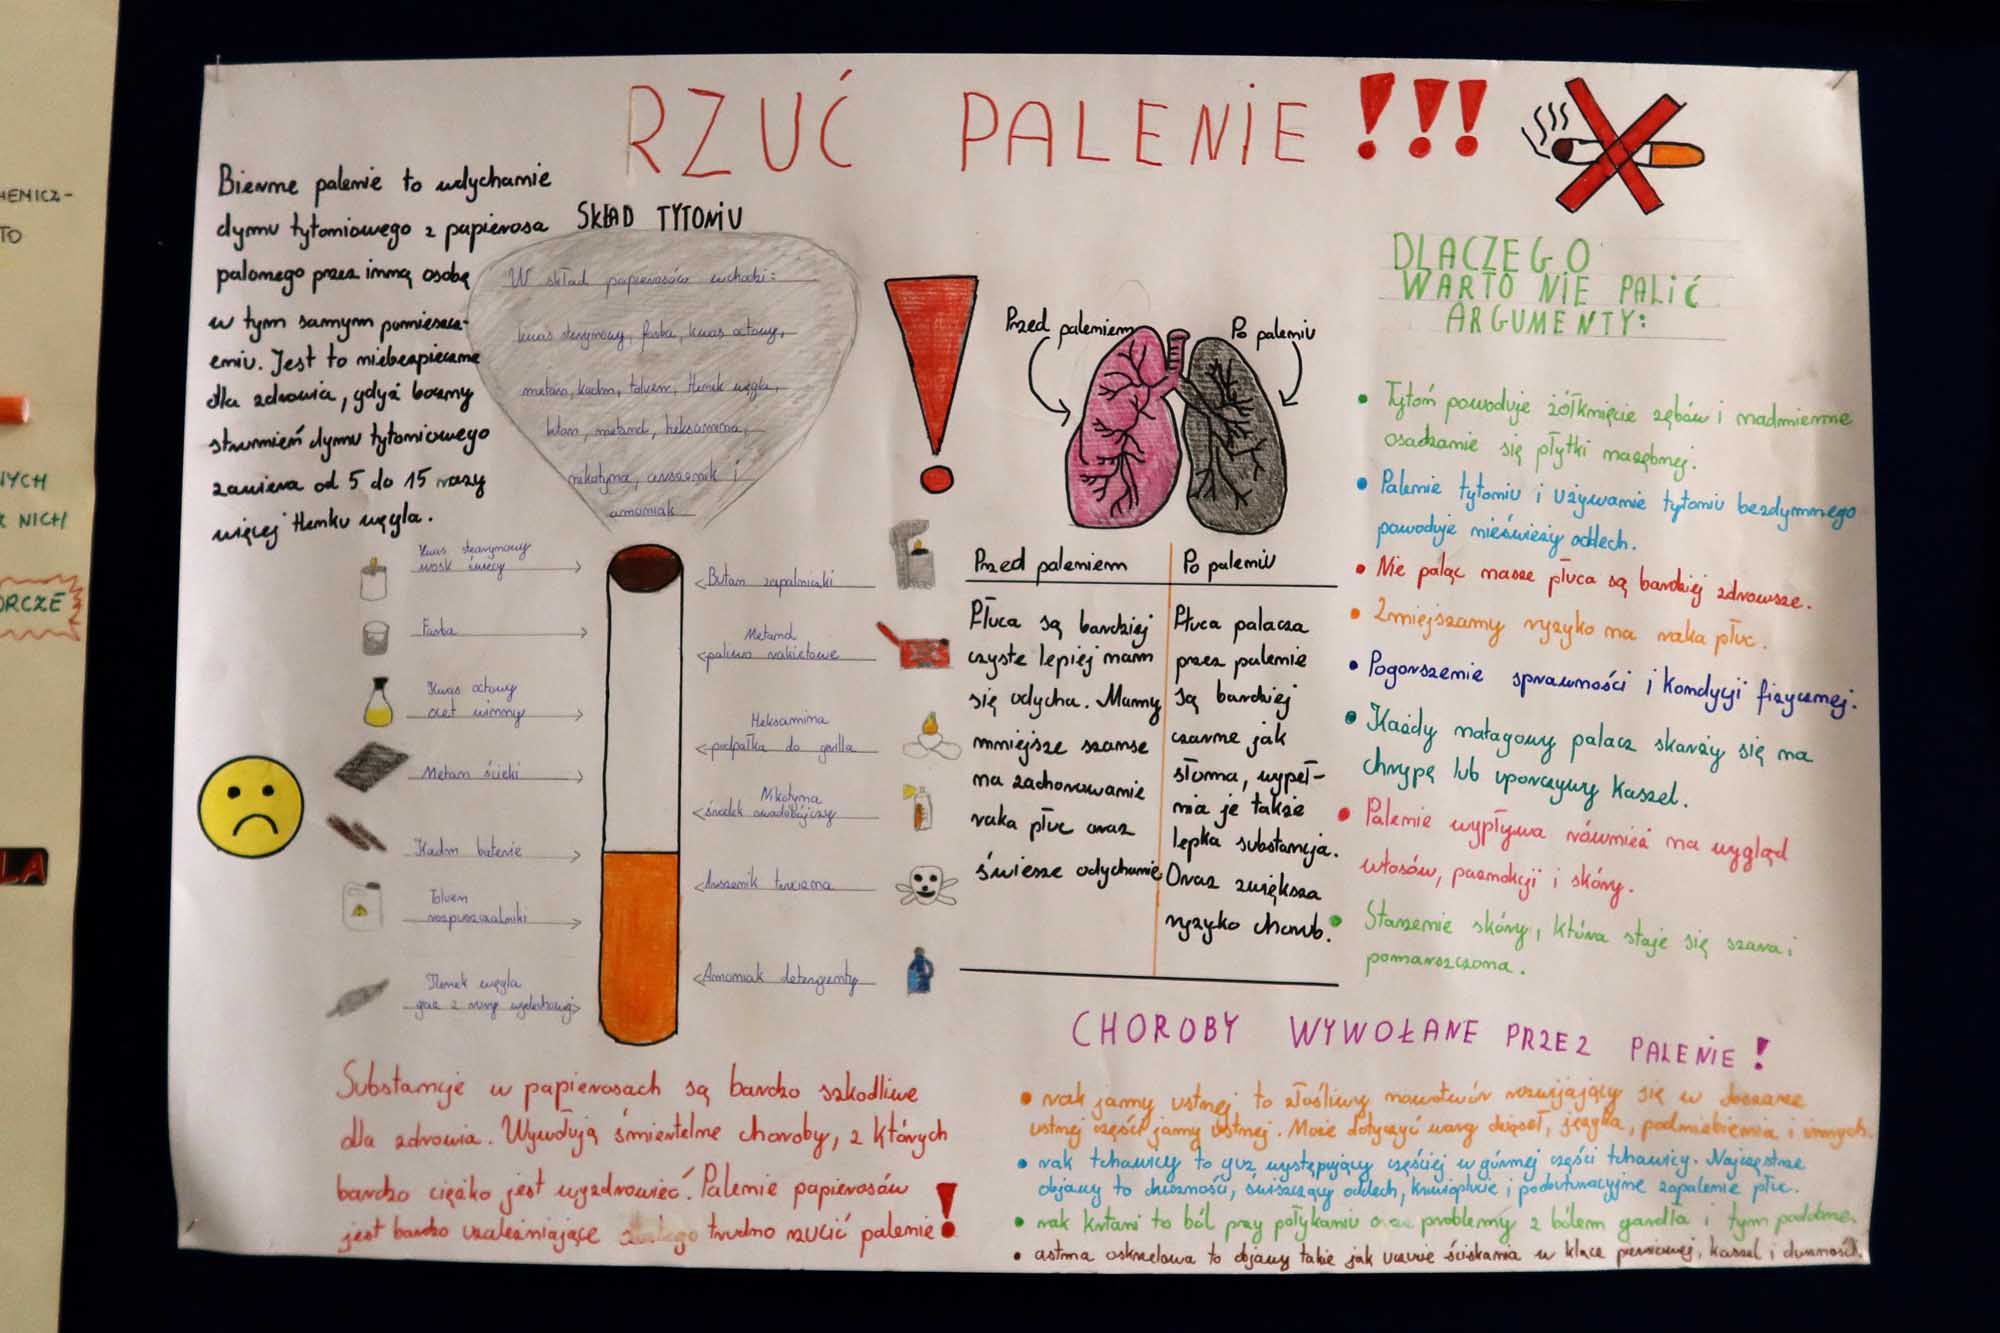 RZUĆ PALENIE!!!
Bierne palenie to wdychanie
dymu tytoniowego z papierosa
palonego przez inną osobę
w tym samym pomieszcz-
eniu. Jest to niebezpieczne
dla zdrowia, gdyż boczny
strumień dymu tytoniowego
zawiera od 5 do 15 razy
więcej tlenku węgla.
SKŁAD TYTONIU
W skład papierosów wchodzi:
kwas stearynowy, farba, kwas octowy,
metan, kadm, toluen, tlenek węgla,
butan, metanol, heksamina,
nikotyna, arszenik i
amoniak
Kwas stearynowy
wosk świecy
Farba
Kwas octowy
ocet winny
Metan ścieki
Kadm baterie
Toluen
rozpuszczalniki
Tlenek węgla
gaz z rury wydechowej
Butan zapalniczki
Metanol
paliwo rakietowe
Heksamina
podpałka do grilla
Nikotyna
środek owadobójczy
Arszenik trucizna
Amoniak detergenty
Przed paleniem
Po paleniu
Przed paleniem
Płuca są bardziej
czyste lepiej nam
się odycha. Mamy
mniejsze szanse
na zachorowanie
raka płuc oraz
świeże odychanie
Po paleniu
Płuca palacza
przez palenie
są bardziej
czarne jak
słoma, wypeł-
nia je także
lepka substancja.
Oraz zwiększa
ryzyko chorub.
DLACZEGO
WARTO NIE PALIĆ
ARGUMENTY:
• Tytoń powoduje żółknięcie zębów i nadmierne
osadzanie się płytki nazębnej.
• Palenie tytoniu i używanie tytoniu bezdymnego
powoduje nieświeży oddech.
• Nie paląc nasze płuca są bardziej zdrowsze.
• Zmiejszamy ryzyko na raka płuc.
• Pogorszenie sprawności i kondycji fizycznej.
• Każdy nałogowy palacz skarży się na
chrypę lub uporczywy kaszel.
• Palenie wypływa również na wygląd
włosów, paznokcji i skóry.
• Starzenie skóry, która staje się szara i
pomarszczona.
Substancje w papierosach są bardzo szkodliwe
dla zdrowia. Wywołują śmiertelne choroby, z których
bardzo ciężko jest wyzdrowieć. Palenie papierosów
jest bardzo uzależniające dlatego trudno rzucić palenie!
CHOROBY WYWOŁANE PRZEZ PALENIE!
• rak jamy ustnej to złośliwy nowotwór rozwijający się w obszarze
ustnej części jamy ustnej. Może dotyczyć warg dziąseł, języka, podniebienia i innych.
• rak tchawicy to guz występujący częściej w górnej części tchawicy. Najczęstsze
objawy to duszności, świszczący oddech, krwioplucie i poobturacyjne zapalenie płuc.
• rak krtani to ból przy połykaniu oraz problemy z bólem gardła i tym podobne.
• astma oskrzelowa to objawy takie jak uczucie ściskania w klace piersiowej, kaszel i duszność.
HEMICZ-
TO
NYCH
NICH
ÓRCZE
LA